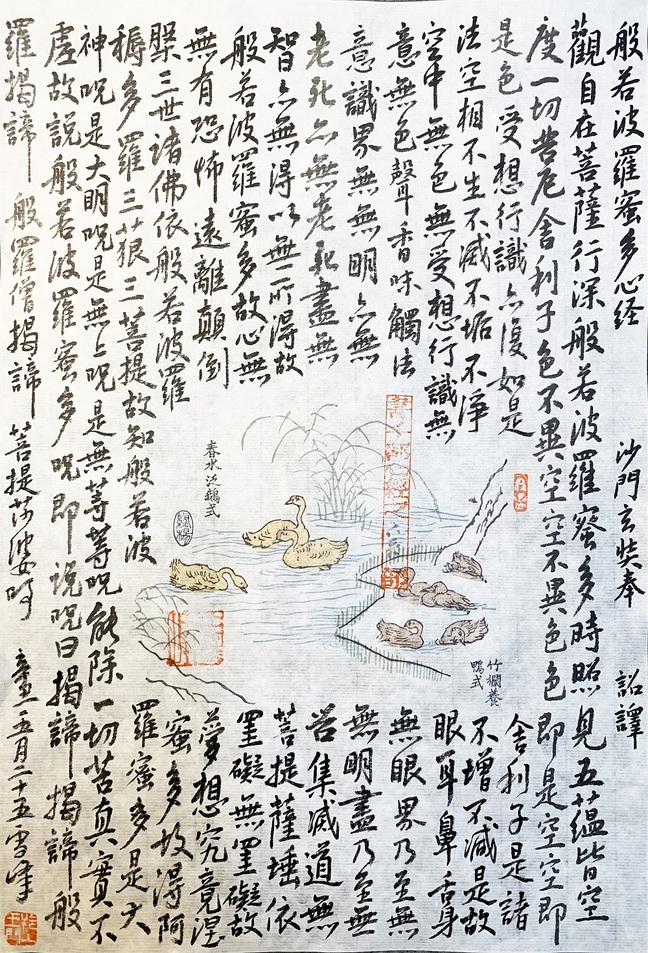 般若波羅蜜多心经 沙門玄奘奉 詔譯
觀自在菩薩行深般若波羅蜜多時照見五蕴皆空
度一切苦厄舍利子色不異空空不異色色即是空空即
是色受想行識亦復如是 舍利子是諸
法空相不生不滅不垢不淨 不增不減是故
空中無色無受想行識無 眼耳鼻舌身
意無色聲香味觸法 無眼界乃至無
意識界無無明亦無 無明盡乃至無
老死亦無老死盡無 苦集滅道無
智亦無得以無所得故 菩提薩埵依
般若波羅蜜多故心無 罣礙無罣礙故
無有恐怖遠離顛倒 夢想究竟涅
槃三世諸佛依般若波羅 蜜多故得阿
耨多羅三藐三菩提故知般若波 羅蜜多是大
神呪是大明呪是無上呪是無等等呪能除一切苦真實不
虛故説般若波羅蜜多呪即说呪曰揭諦揭諦般
羅揭諦 般羅僧揭諦 菩提莎婆呵 辛丑五月二十五雪峰
竹欄養
鴨式
春水泛鵝式